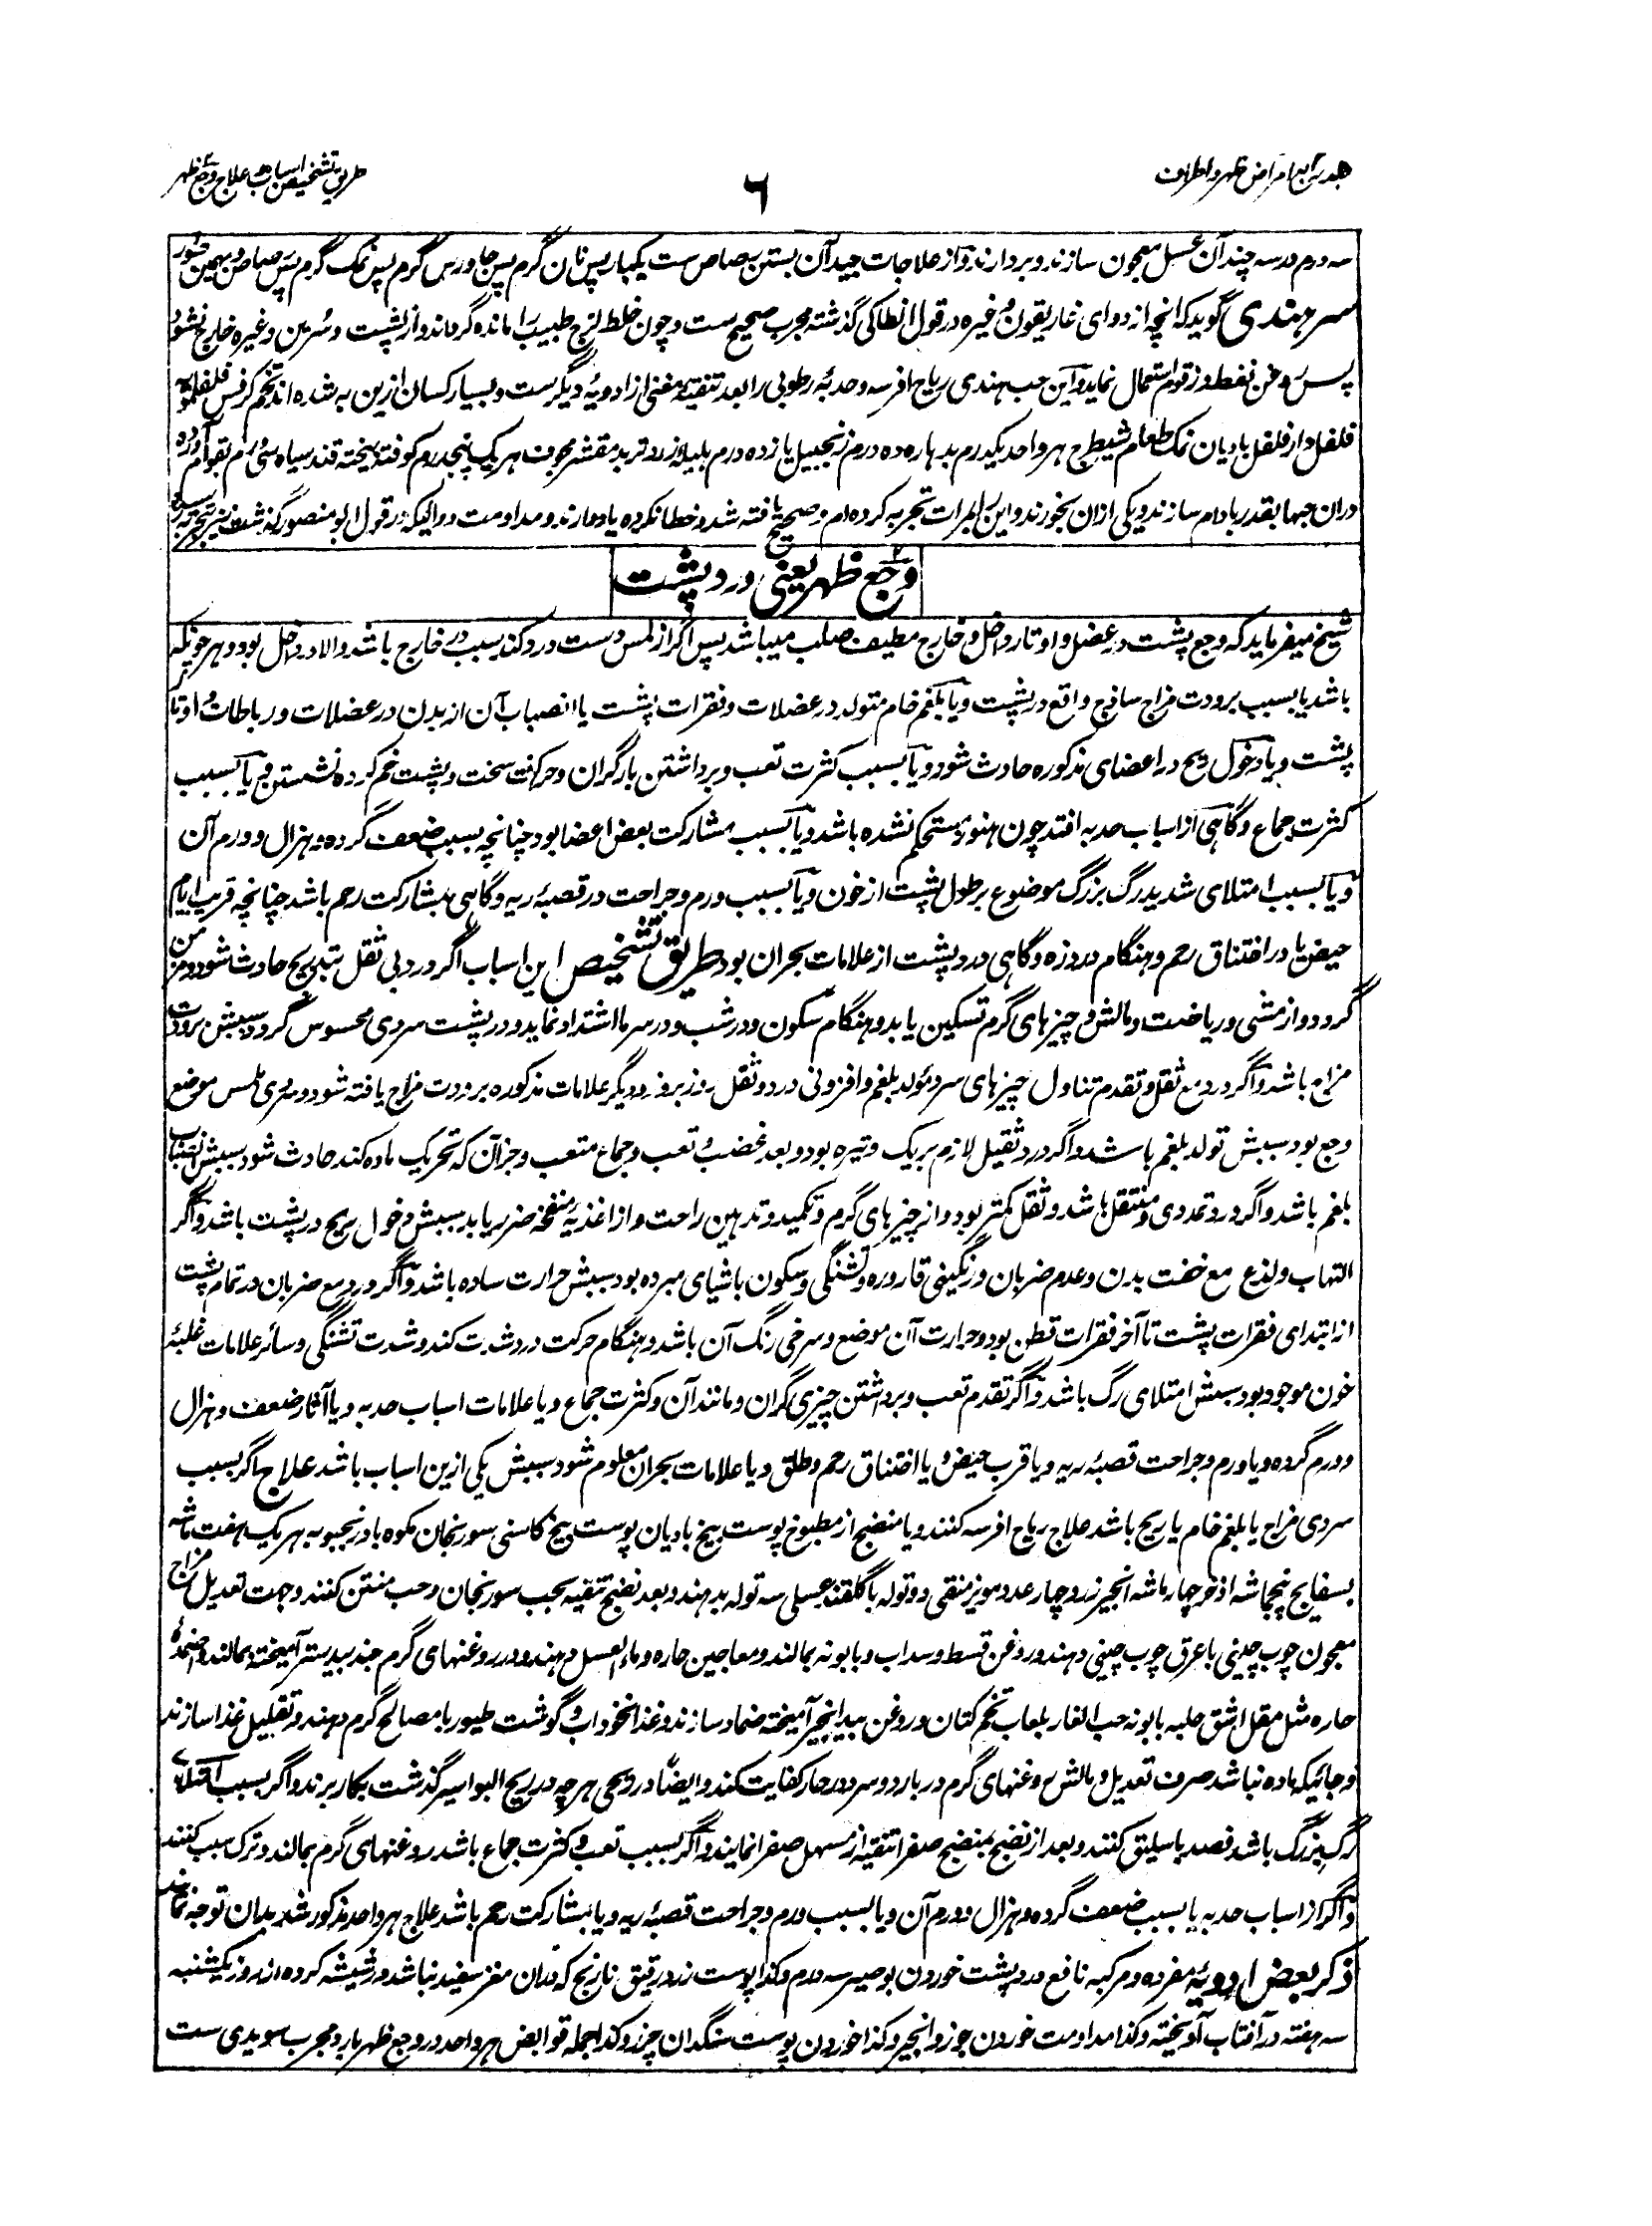 جلد چهارم امراض ظهر و اطراف
٦
طریق تشخیص اسباب و علاج وجع ظهر
سه درم در سه چند آن عسل معجون سازند و بردارند و از علاجات جید آن بستن رصاص ست یکبار پس نان گرم پس جاورس گرم پس نمک گرم پس رصاص و بهمین دستور
سرهندی گوید که انچه از دوای غاریقون وغیره در قول انطاکی گذشته مجرب صحیح ست و چون خلط لزج طبیب را مانده گرداند و از پشت و سرین وغیره خارج نشود
پس روغن نفط و زقوم استعمال نماید و این حب هندی ریاح افرسه و حدبهٔ رطوبی را بعد تنقیه مغنی از ادویهٔ دیگر ست و بسیار کسان ازین به شده اند تخم کرفس فلفلمویه
فلفل دراز فلفل بادیان نمک طعام شیطرج هر واحد یکدرم بدهاره ده درم زنجبیل یازده درم بلیله زرد تربد مقشر مجوف هر یک پنجدرم کوفته بیخته قند سیاه سی درم بقوام آورده
دران حبها بقدر بادام سازند و یکی ازان بخورند و این را بمرات تجربه کرده ام و صحیح یافته شد و خطا نکرده یاد دارند و مداومت دوائیکه در قول ابو منصور گذشت نیز بتجربه رسیده
وجع ظهر یعنی درد پشت
شیخ میفرماید که وجع پشت در عضل و اوتار داخل و خارج مطیف صلب میباشد پس اگر از لمس دست درد کند سبب در خارج باشد والا در داخل بود و هر چونیکه
باشد یا بسبب برودت مزاج ساذج واقع در پشت و یا بلغم خام متولد در عضلات و فقرات پشت یا انصباب آن از بدن در عضلات و رباطات و اوتار
پشت و یا دخول ریح در اعضای مذکوره حادث شود و یا بسبب کثرت تعب و برداشتن بار گران و حرکت سخت و پشت خم کرده نشستن و یا بسبب
کثرت جماع و گاهی از اسباب حدبه افتد چون هنوز مستحکم نشده باشد و یا بسبب مشارکت بعض اعضا بود چنانچه بسبب ضعف گرده و هزال و ورم آن
و یا بسبب امتلای شدید رگ بزرگ موضوع بر طول پشت از خون و یا بسبب ورم و جراحت در قصبهٔ ریه و گاهی بمشارکت رحم باشد چنانچه قریب ایام
حیض یا در اختناق رحم و هنگام دردزه و گاهی درد پشت از علامات بحران بود طریق تشخیص این اسباب اگر درد بی ثقل بتدریج حادث شود و مزمن
گردد و از مشی و ریاضت و مالش و چیزهای گرم تسکین یابد و هنگام سکون و در شب و در سرما اشتداد نماید و در پشت سردی محسوس گردد سببش برودت
مزاج باشد و اگر درد مع ثقل و تقدم تناول چیزهای سرد مولد بلغم و افزونی درد و ثقل روز بروز و دیگر علامات مذکوره برودت مزاج یافته شود و سردی لمس موضع
وجع بود سببش تولد بلغم باشد و اگر درد ثقیل لازم بر یک وتیره بود و بعد غضب و تعب و جماع متعب و جز آن که تحریک ماده کند حادث شود سببش انصباب
بلغم باشد و اگر درد تمددی و منتقل باشد و ثقل کمتر بود و از چیزهای گرم و تکمید و تدهین راحت و از اغذیهٔ منفخه ضرر یابد سببش دخول ریح در پشت باشد و اگر
التهاب و لذع مع خفت بدن و عدم ضربان و رنگینی قاروره و تشنگی و سکون باشیای مبرده بود سببش حرارت ساده باشد و اگر درد مع ضربان در تمام پشت
از ابتدای فقرات پشت تا آخر فقرات قطن بود و حرارت آن موضع و سرخی رنگ آن باشد و هنگام حرکت درد شدت کند و شدت تشنگی و سائر علامات غلبهٔ
خون موجود بود سببش امتلای رگ باشد و اگر تقدم تعب و برداشتن چیزی گران و مانند آن و کثرت جماع و یا علامات اسباب حدبه و یا آثار ضعف و هزال
و ورم گرده و یا ورم و جراحت قصبهٔ ریه و یا قرب حیض و یا اختناق رحم و طلق و یا علامات بحران معلوم شود سببش یکی ازین اسباب باشد علاج اگر بسبب
سردی مزاج یا بلغم خام یا ریح باشد علاج ریاح افرسه کنند و یا منضج از مطبوخ پوست بیخ بادیان پوست بیخ کاسنی سورنجان مکوه بادرنجبویه هر یک هفت ماشه
بسفایج پنجماشه اذخر چهار ماشه انجیر زرد چهار عدد مویز منقی دو توله با گلقند عسلی سه توله بدهند و بعد نضج تنقیه بحب سورنجان و حب منتن کنند و جهت تعدیل مزاج
معجون چوب چینی با عرق چوب چینی دهند و روغن قسط و سداب و بابونه بمالند و معاجین حاره و ماء العسل دهند و در روغنهای گرم جندبیدستر آمیخته بمالند و اضمدهٔ
حاره مثل مقل اشق حلبه بابونه حب الغار بلعاب تخم کتان و روغن بیدانجیر آمیخته ضماد سازند و غذا نخوداب و گوشت طیور با مصالح گرم دهند و تقلیل غذا سازند
و جائیکه ماده نباشد صرف تعدیل و مالش روغنهای گرم در بارد و سرد در حار کفایت کند و ایضاً در ریحی هر چه در ریح البواسیر گذشت بکار برند و اگر بسبب امتلای
رگ بزرگ باشد فصد باسلیق کنند و بعد از نضج بمنضج صفرا تنقیه از مسهل صفرا نمایند و اگر بسبب تعب و کثرت جماع باشد روغنهای گرم بمالند و ترک سبب کنند
و اگر از اسباب حدبه یا بسبب ضعف گرده و هزال و ورم آن و یا بسبب ورم و جراحت قصبهٔ ریه و یا بمشارکت رحم باشد علاج هر واحد مذکور شد بدان توجه نمایند
ذکر بعض ادویهٔ مفرده و مرکبه نافع درد پشت خوردن بوصیر سه درم و کذا پوست زرد رقیق نارنج که دران مغز سفید نباشد در شیشه کرده از روز یکشنبه
سه هفته در آفتاب آویخته و کذا مداومت خوردن جوز و انجیر و کذا خوردن پوست سنگدان چرز و کذا جمله قوابض هر واحد در وجع ظهر بارد مجرب سویدی ست